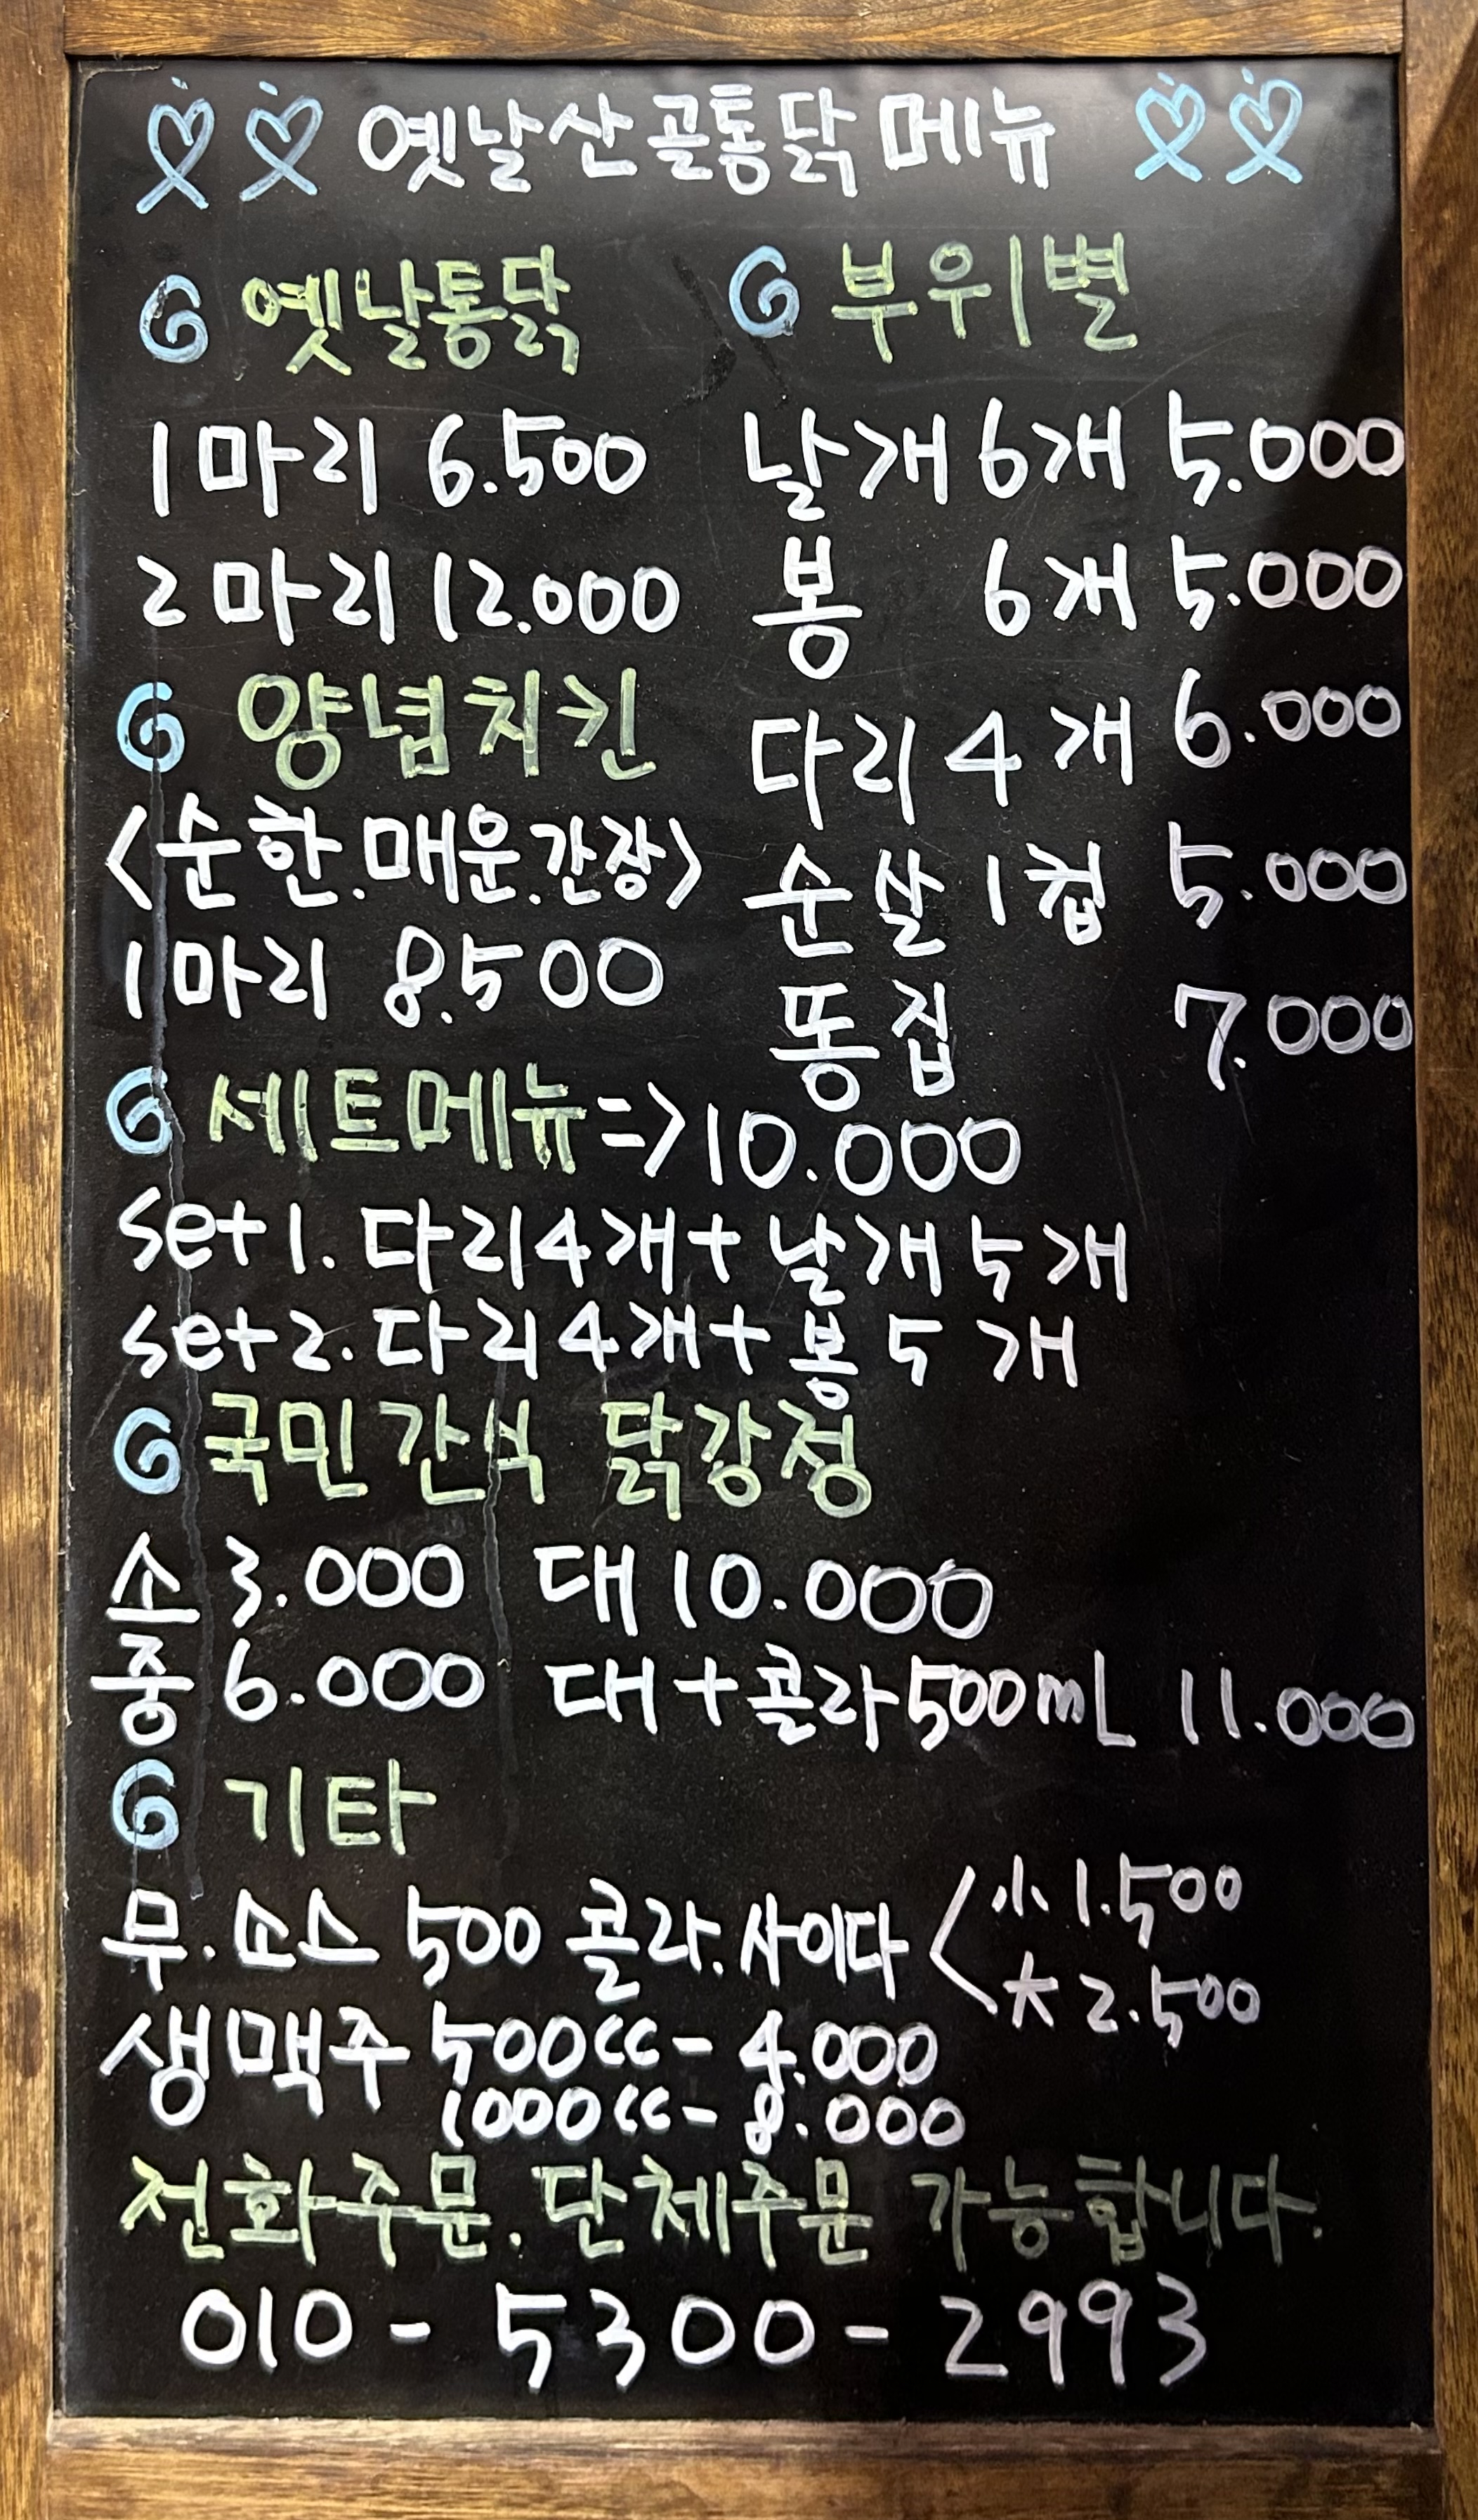 옛날산골통닭 메뉴
옛날통닭
1마리 6.500
2마리 12.000
양념치킨
<순한.매운.간장>
1마리 8.500
부위별
날개 6개 5.000
봉 6개 5.000
다리 4개 6.000
순살 1컵 5.000
똥집 7.000
세트메뉴=>10.000
set1. 다리4개+날개5개
set2. 다리4개+봉5개
국민간식 닭강정
소 3.000 대 10.000
중 6.000 대+콜라500mL 11.000
기타
무.소스 500 콜라.사이다<小 1.500
大 2.500
생맥주 500cc- 4.000
1000cc- 8.000
전화주문.단체주문 가능합니다.
010-5300-2993